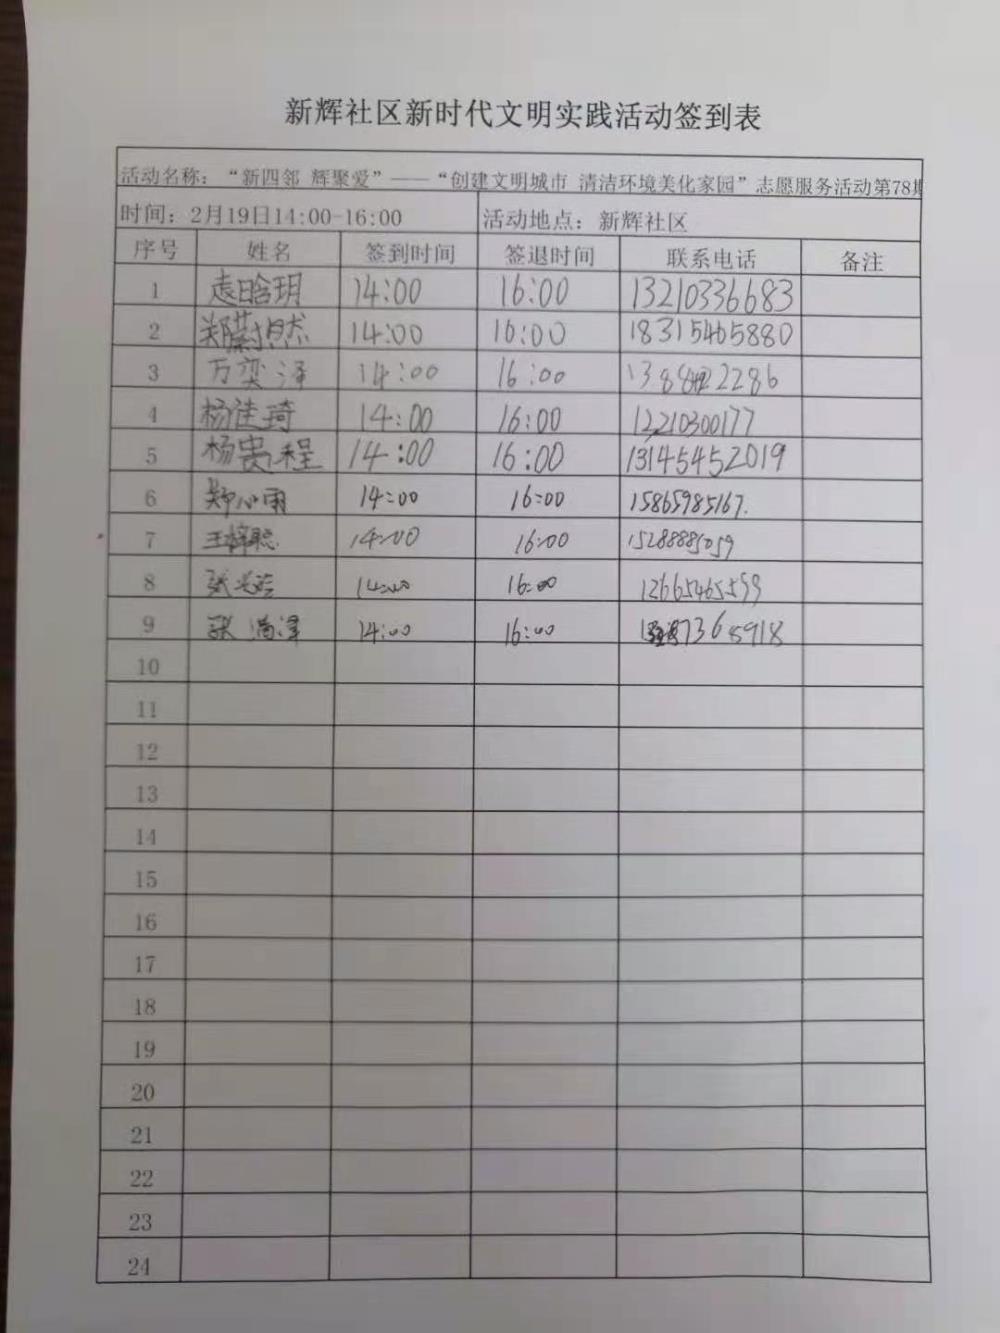 新辉社区新时代文明实践活动签到表
活动名称：“新四邻 辉聚爱”——“创建文明城市 清洁环境美化家园”志愿服务活动第78期
时间：2月19日14:00-16:00 活动地点：新辉社区
序号 姓名 签到时间 签退时间 联系电话 备注
1 袁晗玥 14:00 16:00 13210336683
2 郑蔚然 14:00 16:00 18315465880
3 万奕泽 14:00 16:00
4 杨佳琦 14:00 16:00 12210300177
5 杨贵程 14:00 16:00 13145452019
6 郑心雨 14:00 16:00 15865985167.
7 王梓聪 14:00 16:00 15288885059
8 张 14:00 16:00 12665465599
9 张 泽 14:00 16:00
10
11
12
13
14
15
16
17
18
19
20
21
22
23
24